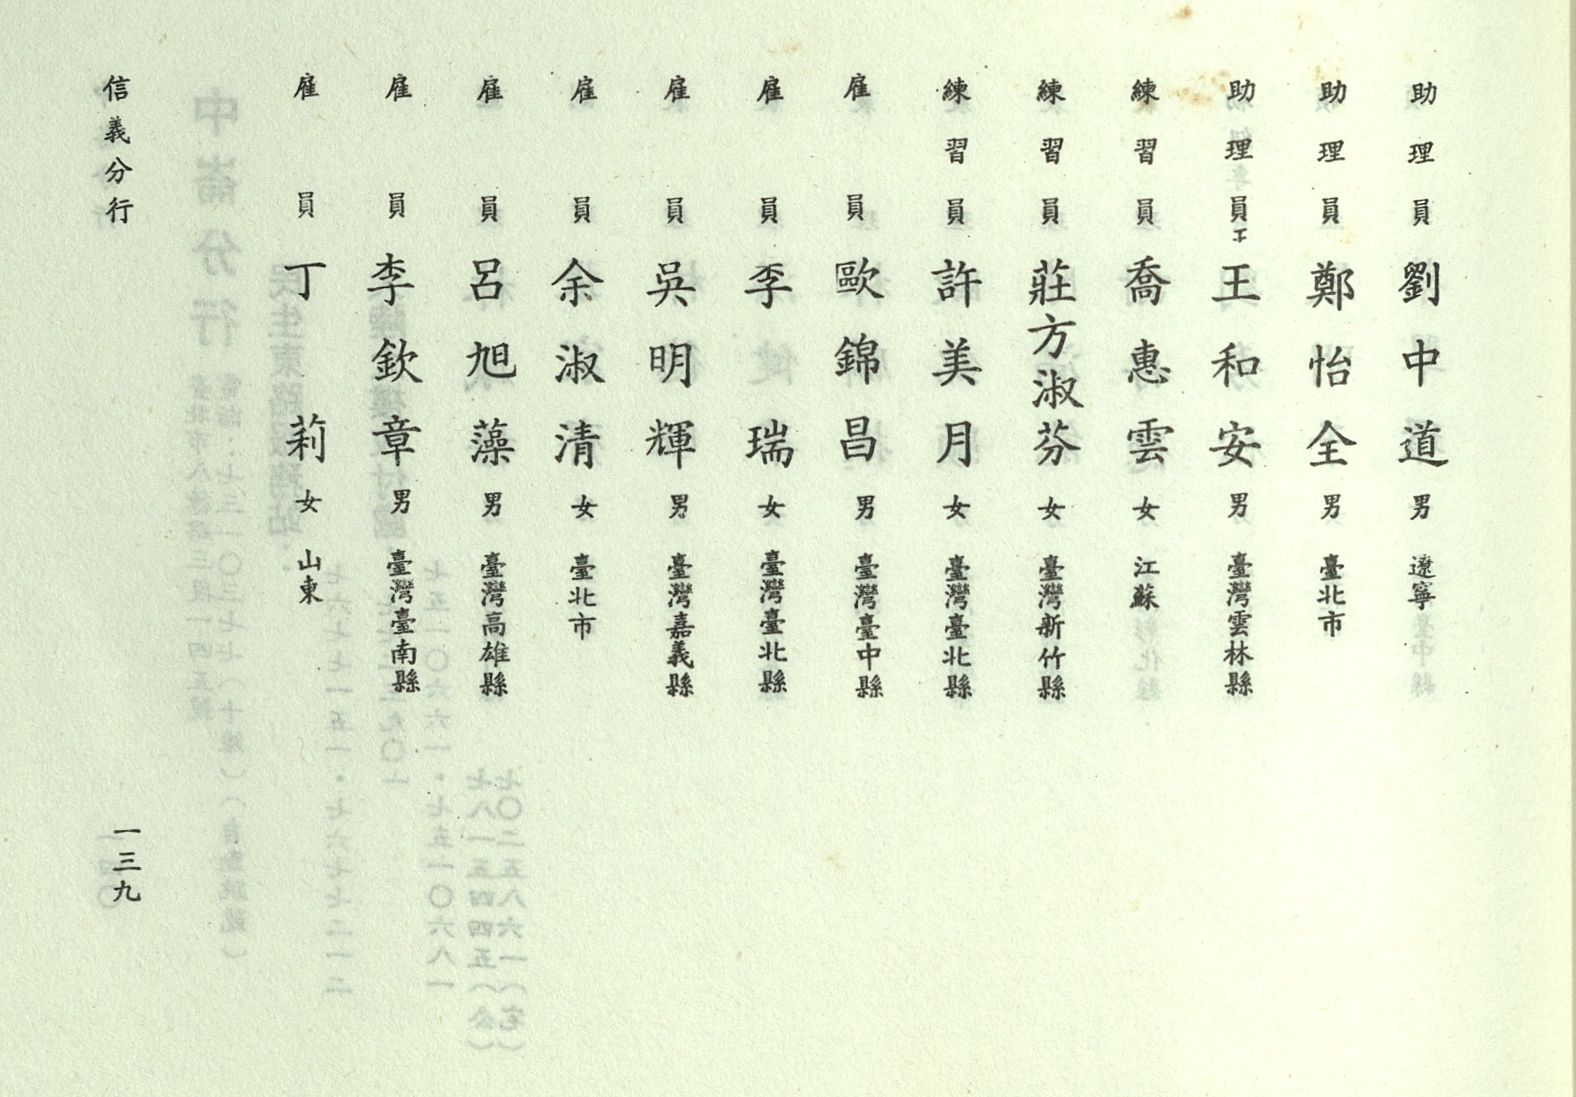 助理員 劉中道 男 遼寧
助理員 鄭怡全 男 臺北市
助理員 王和安 男 臺灣雲林縣
練習員 喬惠雲 女 江蘇
練習員 莊方淑芬 女 臺灣新竹縣
練習員 許美月 女 臺灣臺北縣
雇員 歐錦昌 男 臺灣臺中縣
雇員 李瑞 女 臺灣臺北縣
雇員 吳明輝 男 臺灣嘉義縣
雇員 余淑清 女 臺北市
雇員 呂旭藻 男 臺灣高雄縣
雇員 李欽章 男 臺灣臺南縣
雇員 丁莉 女 山東
信義分行
一三九